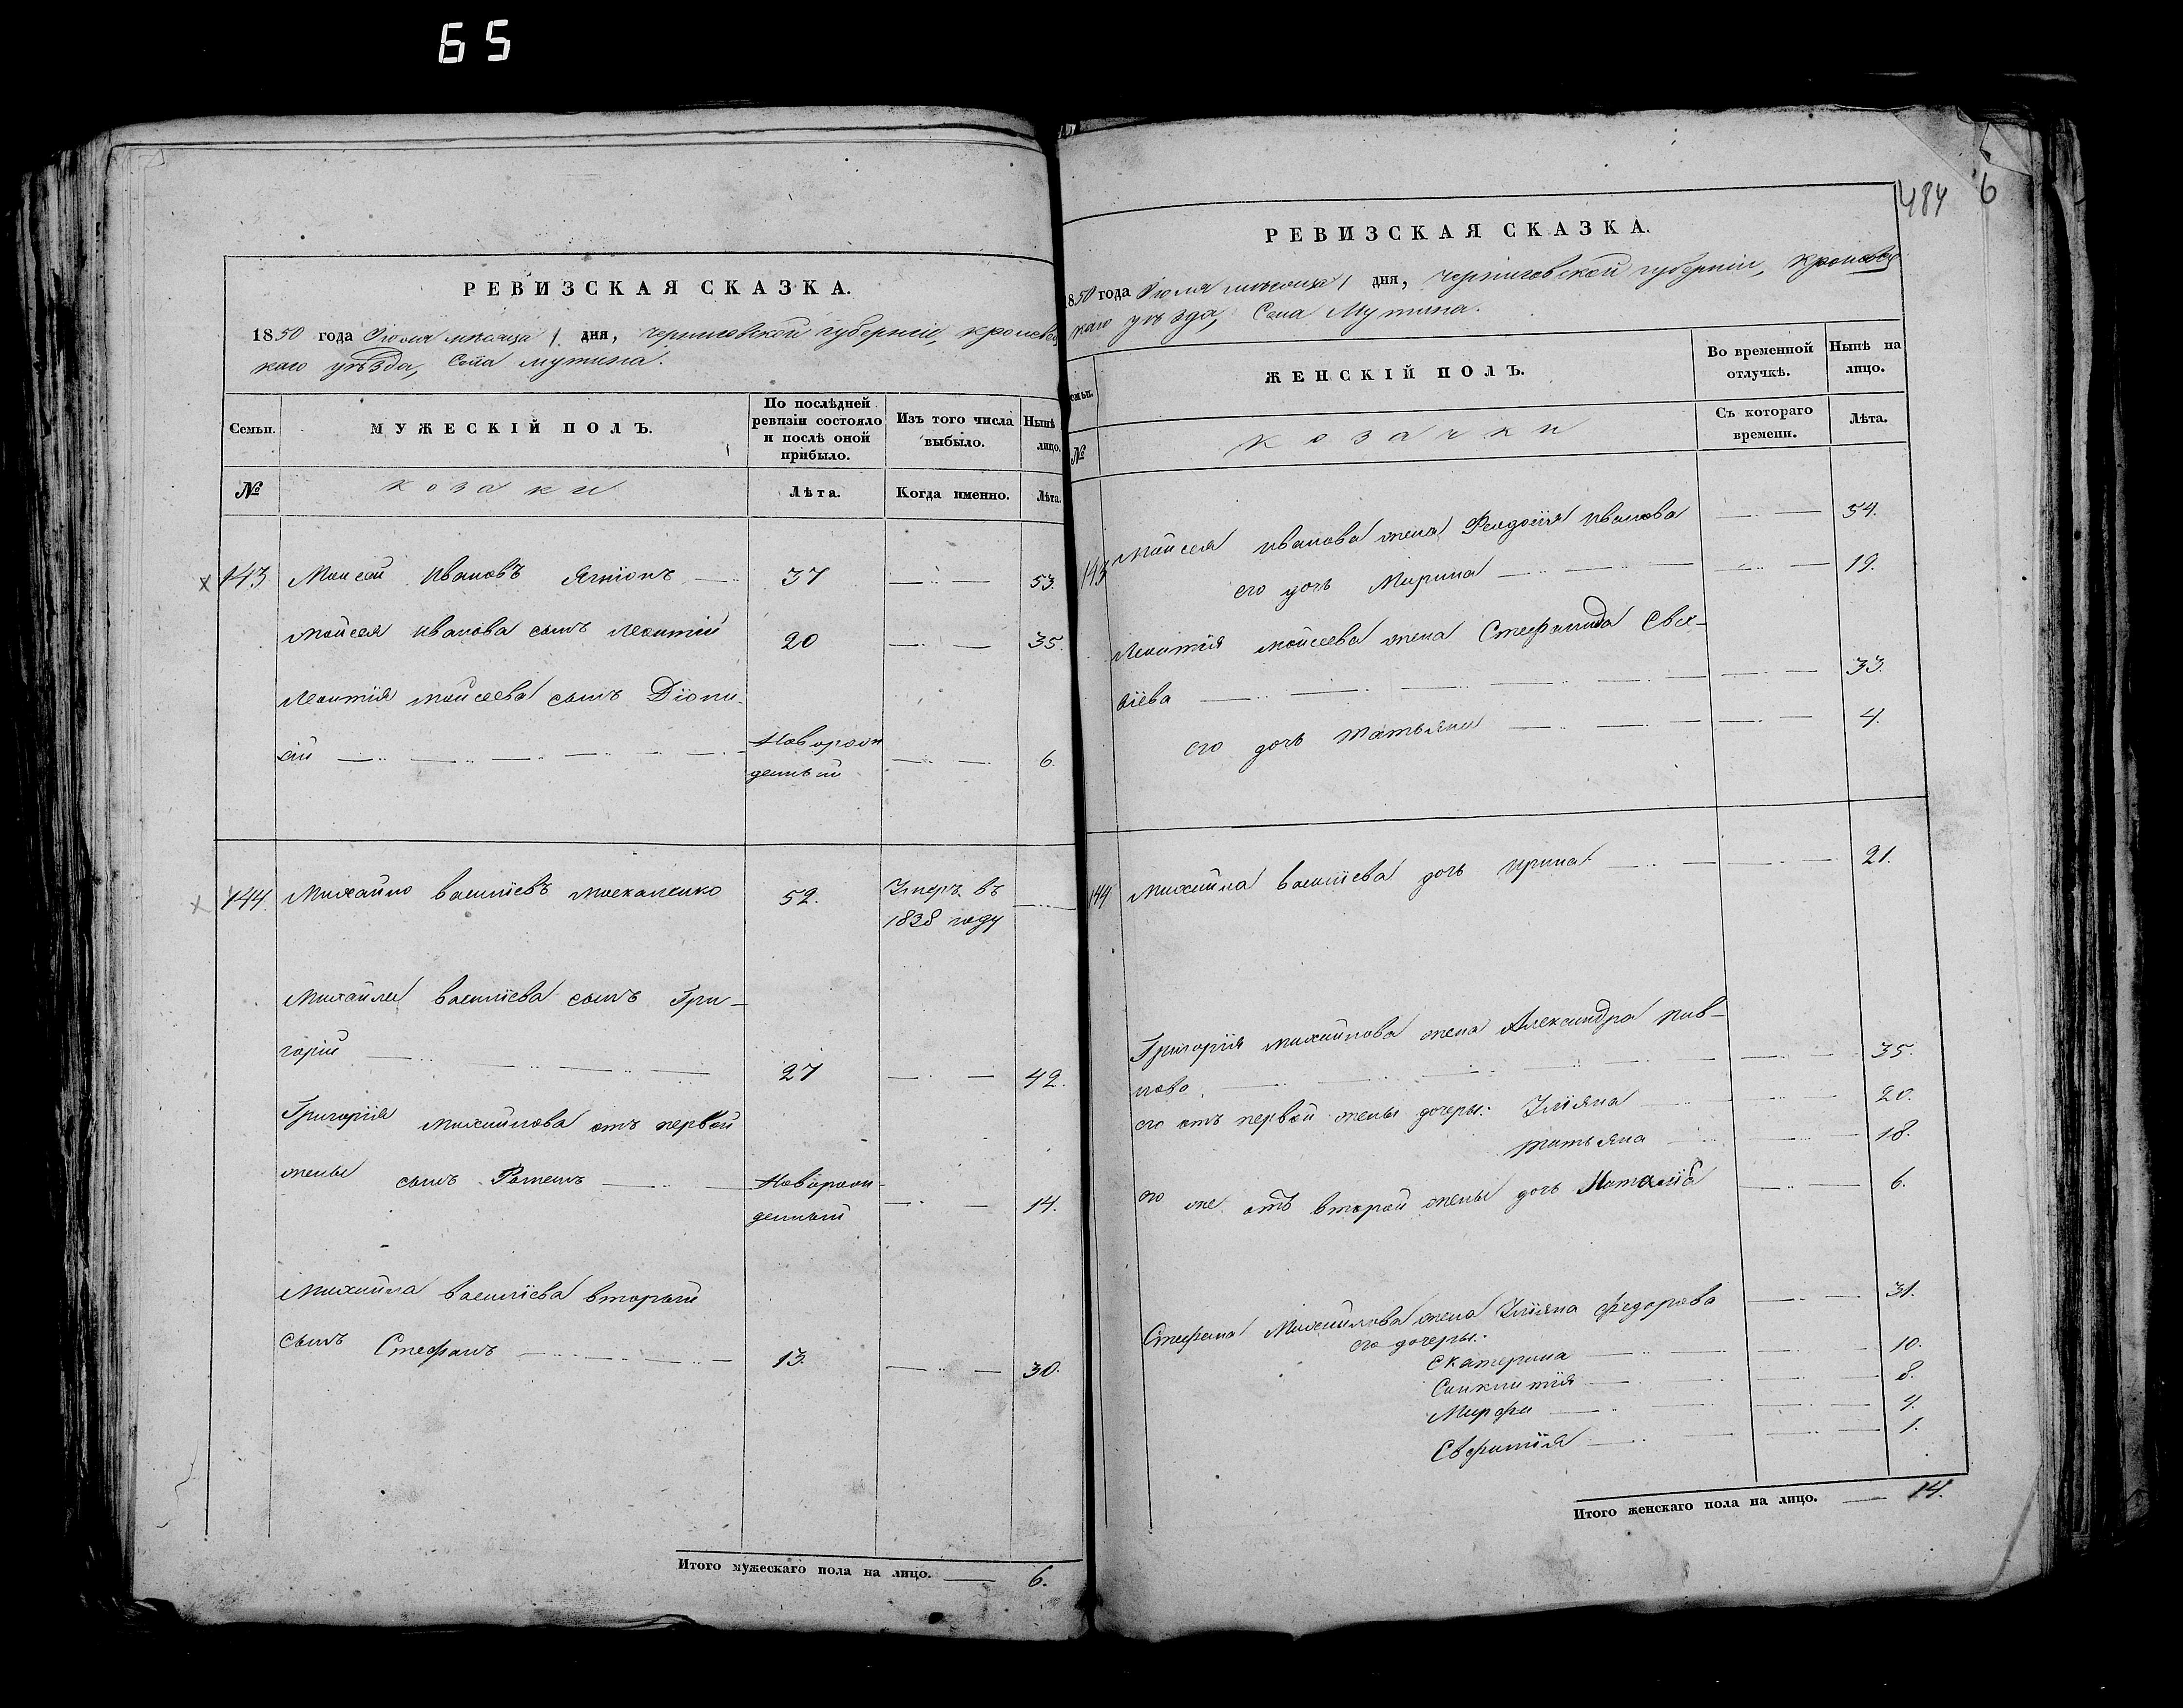 65
РЕВИЗСКАЯ СКАЗКА.
1850 года Июля мѣсяца 1 дня, Черниговской губерніи, кролевец
каго уѣзда, Села Мутина.
Семьи. МУЖЕСКІЙ ПОЛЪ. По послѣдней ревизіи состояло и послѣ оной прибыло. Изъ того числа выбыло. Нынѣ лицо.
№ козаки Лѣта. Когда именно. Лѣта.
143 Моисей Ивановъ 37 53.
Мойсея Иванова сынъ Леонтій 20 35.
Леонтія Мойсеева сынъ Діони-
сій Новорож
денный 6.
144. Михайло Васильевъ Москаленко 52. Умеръ въ
1838 году
Михайла Василіева сынъ Гри-
горій 27 42.
Григорія Михайлова отъ первой
жены сынъ Новорож-
денный 14.
Михайла Василіева вторый
сынъ Стефанъ 13. 30.
Итого мужескаго пола на лицо. 6.
484 6
РЕВИЗСКАЯ СКАЗКА.
850 года Июля мѣсяца 1 дня, Черниговской губерніи, Кролевец
каго уѣзда, Села Мутина.
емьи. ЖЕНСКІЙ ПОЛЪ. Во временной отлучкѣ. Нынѣ на лицо.
№ козачки Съ котораго времени. Лѣта.
143 Мойсея Иванова жена Феодосія Иванова 54.
его дочь Марина 19.
Леонтія Мойсеева жена Стефанида Сав-
віева 33.
его дочь Татьяна 4.
144 Михайла Василіева дочь Ирина 21.
Григорія Михайлова жена Александра Пав-
лова 35.
его отъ первой жены дочеры: Уліяна 20.
Татьяна 18.
его же отъ второй жены дочь Наталія 6.
Стефана Михайлова жена Уліяна Федорова 31.
его дочеры:
Екатерина 10.
Синклитія 8.
Марфа 4.
1.
Итого женскаго пола на лицо. 14.